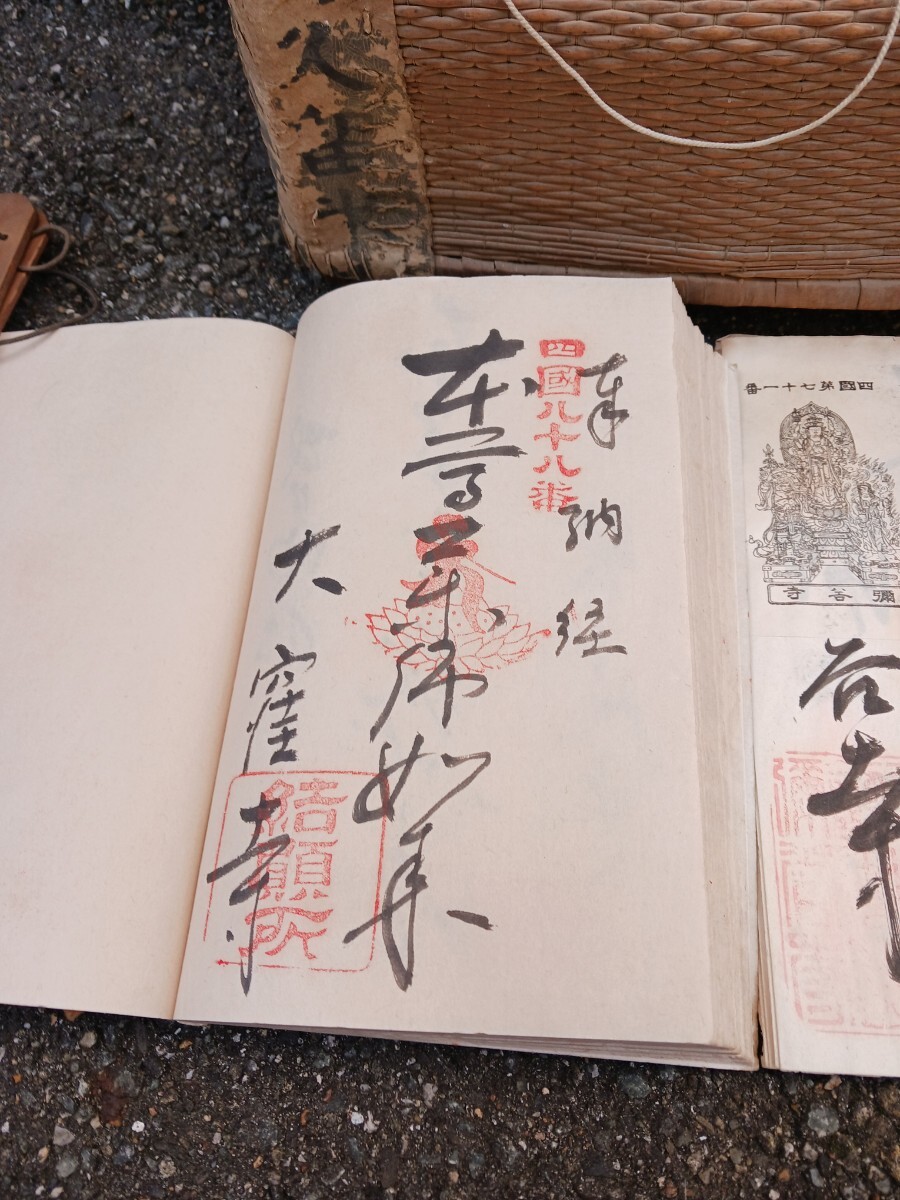 奉納経
四國八十八番
本尊薬師如来
大窪寺
結願所
四國第七十一番
彌谷寺
谷寺